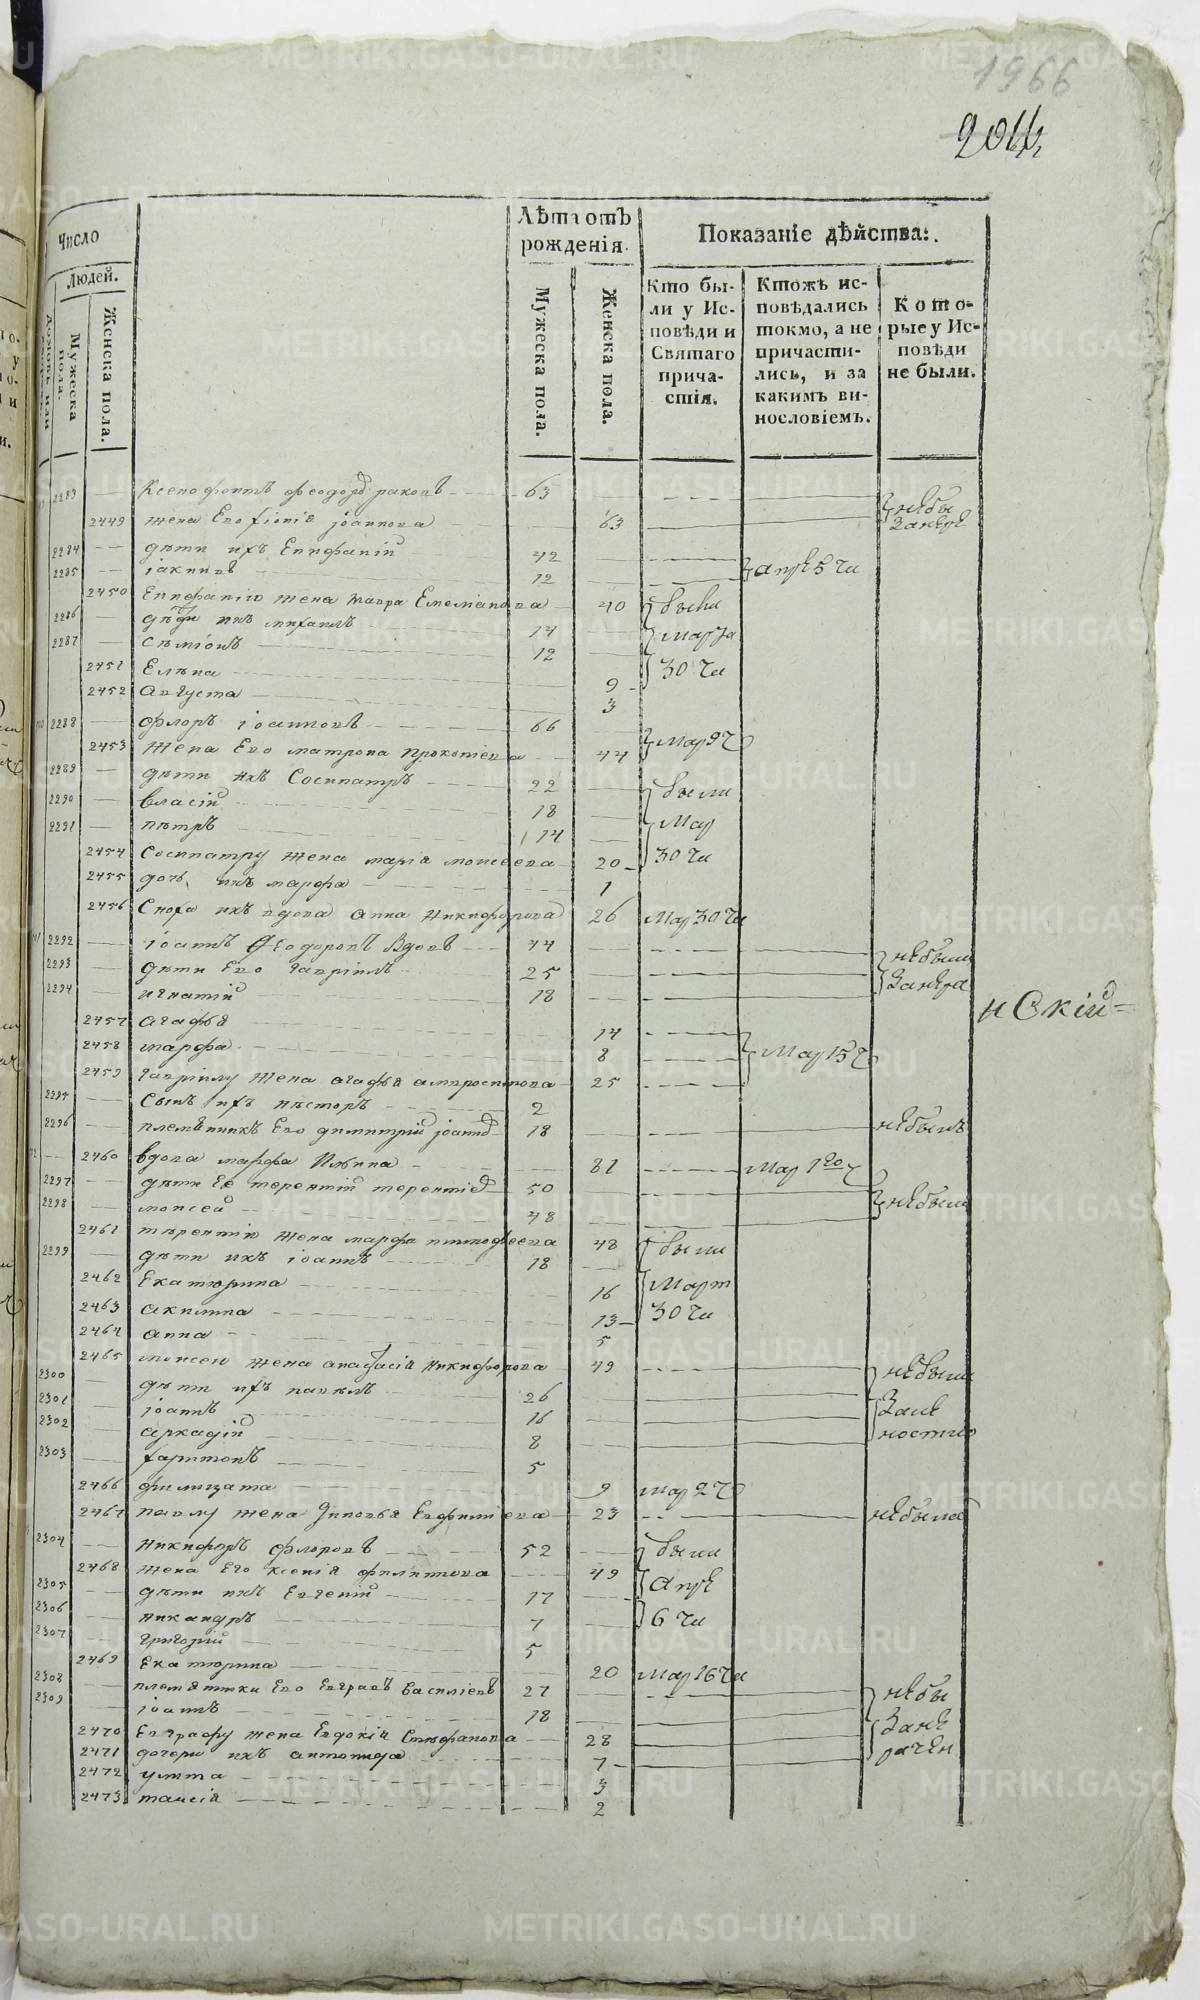 1966
2044
Число
Людей.
Мужеска пола.
Женска пола.
Лѣта отъ рожденія.
Мужеска пола.
Женска пола.
Показаніе дѣйства:
Кто были у Исповѣди и Святаго причастія.
Ктожъ исповѣдались токмо, а не причастились, и за какимъ винословіемъ.
Которые у Исповѣди не были.
2283 Ксенофонтъ Феодор 63
2449 жена Его іоаннова 63
2284 дѣти ихъ Епифаній 42
2285 іакинъ 12
2450 Епифанію жена мавра Емеліанова 40 были
2286 дѣти ихъ михаилъ 14 Марта
2287 сѵмеонъ 12 30 Чи
2451 Елена 9
2452 Августа 3
2288 флоръ іоанновъ 66
2453 жена Его матрона прокопіева 44 Мар 9 Ч
2289 дѣти ихъ Сосипатръ 22 были
2290 власій 18 Мар
2291 петръ 14 30 Чи
2454 Сосипатру жена марія моисеева 20
2455 дочь ихъ марфа 1
2456 Сноха ихъ вдова анна Никифорова 26 Мар 30 Чи
2292 іоаннъ Феодоровъ Вдовъ 44 небыли
2293 дѣти Его гавріилъ 25
2294 игнатій 18
нскій=
2457 агафья 14
2458 марфа 8 Мар 15 Ч
2459 гавріилу жена агафья амвросимова 25
2295 Сынъ ихъ несторъ 2
2296 племянникъ Его димитрій 18 небылъ
2460 вдова марфа Ильина 81 Мар
2297 дѣти Ее терентій терентіев 50 небыли
2298 моисей 48
2461 терентію жена марфа тимофеева 48 были
2299 дѣти ихъ іоаннъ 18
2462 Екатерина 16 Март
2463 акилина 13 30 Чи
2464 анна 5
2465 моисею жена анастасія Никифорова 49 небыли
2300 дѣти ихъ павелъ 26
2301 іоаннъ 16
2302 аркадій 8
2303 харитонъ 5
2466 филицата 9 Мар 2 Ч
2467 павлу жена Зиновья Евфиміева 23 небыла
2304 Никифоръ флоровъ 52 были
2468 жена Его ксенія филиппова 49 Апре
2305 дѣти ихъ Евгеній 17
2306 никандръ 7 6 Чи
2307 григорій 5
2469 Екатерина 20 Мар 16 Чи
2308 племянники Его Евграфъ василіевъ 27 небы
2309 іоаннъ 18
2470 Евграфу жена Евдокія Стефанова 28
2471 дочери ихъ антонида 7
2472 улита 3
2473 таисія 2